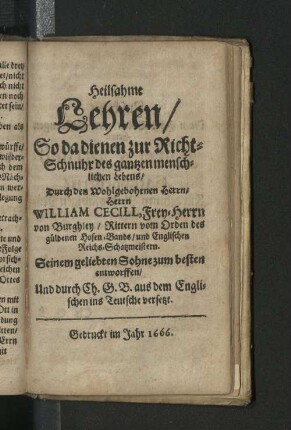 Heilsahme
Lehren/
So da dienen zur Richt-
Schnuhr des gantzen mensch-
lichen Lebens/
Durch den Wohlgebohrnen Herrn/
Herrn
WILLIAM CECILL, Frey-Herrn
von Burghley/ Rittern vom Orden des
güldenen Hosen-Bands/ und Englischen
Reichs-Schatzmeistern.
Seinem geliebten Sohne zum besten
entworffen/
Und durch Ch. G. B. aus dem Engli-
schen ins Teutsche versetzt.
Gedruckt im Jahr 1666.